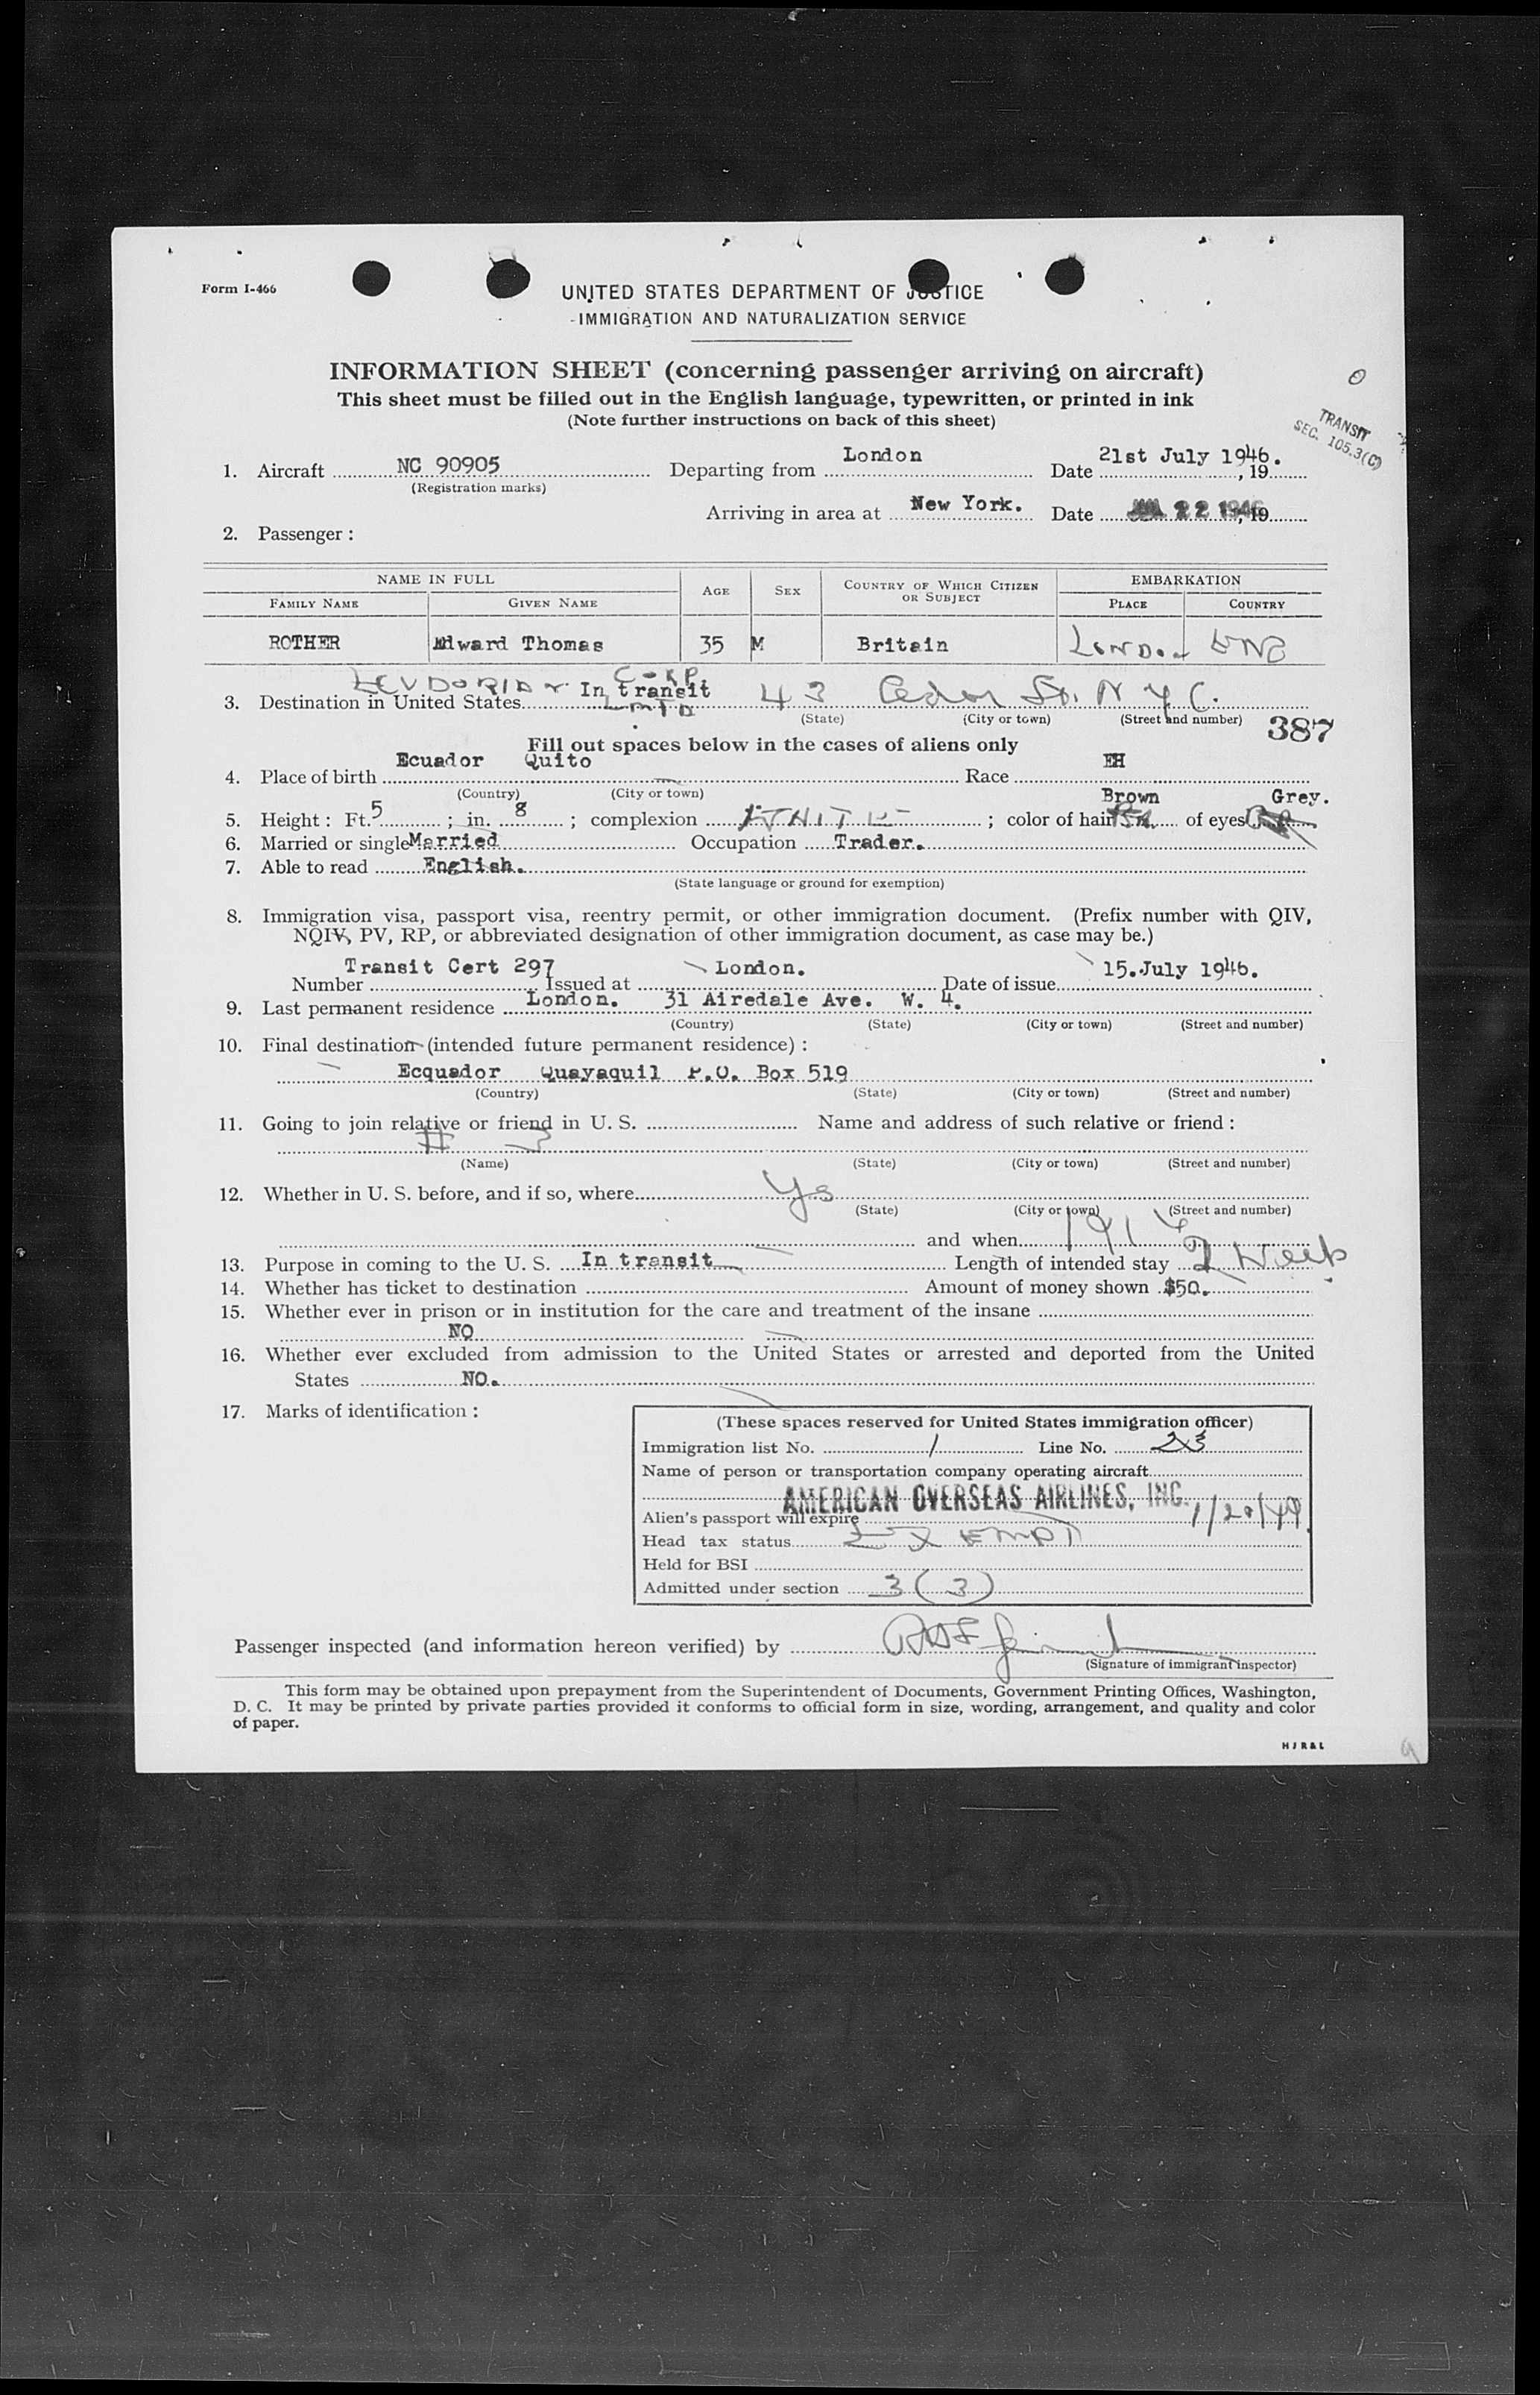 Form I-466
UNITED STATES DEPARTMENT OF JUSTICE
IMMIGRATION AND NATURALIZATION SERVICE
INFORMATION SHEET (concerning passenger arriving on aircraft)
This sheet must be filled out in the English language, typewritten, or printed in ink
(Note further instructions on back of this sheet)
TRANSIT
SEC. 105.3(C)
1. Aircraft NC 90905 Departing from London Date 21st July 1946. , 19
(Registration marks)
Arriving in area at New York. Date 22 1946, 19
2. Passenger :
NAME IN FULL AGE SEX COUNTRY OF WHICH CITIZEN OR SUBJECT EMBARKATION
FAMILY NAME GIVEN NAME PLACE COUNTRY
ROTHER Edward Thomas 35 M Britain LONDON ENG
CORP.
3. Destination in United States In transit 43 Cedar St. N Y C.
LMTD
(State) (City or town) (Street and number) 387
Fill out spaces below in the cases of aliens only
4. Place of birth Ecuador Quito Race EH
(Country) (City or town)
5. Height : Ft. 5 ; in. 8 ; complexion WHITE ; color of hair Brown of eyes Grey.
6. Married or single Married Occupation Trader.
7. Able to read English.
(State language or ground for exemption)
8. Immigration visa, passport visa, reentry permit, or other immigration document. (Prefix number with QIV,
NQIV, PV, RP, or abbreviated designation of other immigration document, as case may be.)
Number Transit Cert 297 Issued at London. Date of issue 15. July 1946.
9. Last permanent residence London. 31 Airedale Ave. W. 4.
(Country) (State) (City or town) (Street and number)
10. Final destination (intended future permanent residence) :
Ecquador Quayaquil P.O. Box 519
(Country) (State) (City or town) (Street and number)
11. Going to join relative or friend in U. S. Name and address of such relative or friend :
# 3
(Name) (State) (City or town) (Street and number)
12. Whether in U. S. before, and if so, where Yes
(State) (City or town) (Street and number)
and when 1914
13. Purpose in coming to the U. S. In transit Length of intended stay 2 Weeks
14. Whether has ticket to destination Amount of money shown $50.
15. Whether ever in prison or in institution for the care and treatment of the insane
NO
16. Whether ever excluded from admission to the United States or arrested and deported from the United
States NO.
17. Marks of identification :
(These spaces reserved for United States immigration officer)
Immigration list No. 1 Line No. 23
Name of person or transportation company operating aircraft
AMERICAN OVERSEAS AIRLINES, INC.
Alien's passport will expire 1/20/49
Head tax status EXEMPT
Held for BSI
Admitted under section 3 (3)
Passenger inspected (and information hereon verified) by
(Signature of immigrant inspector)
This form may be obtained upon prepayment from the Superintendent of Documents, Government Printing Offices, Washington,
D. C. It may be printed by private parties provided it conforms to official form in size, wording, arrangement, and quality and color
of paper.
HJR&L
9